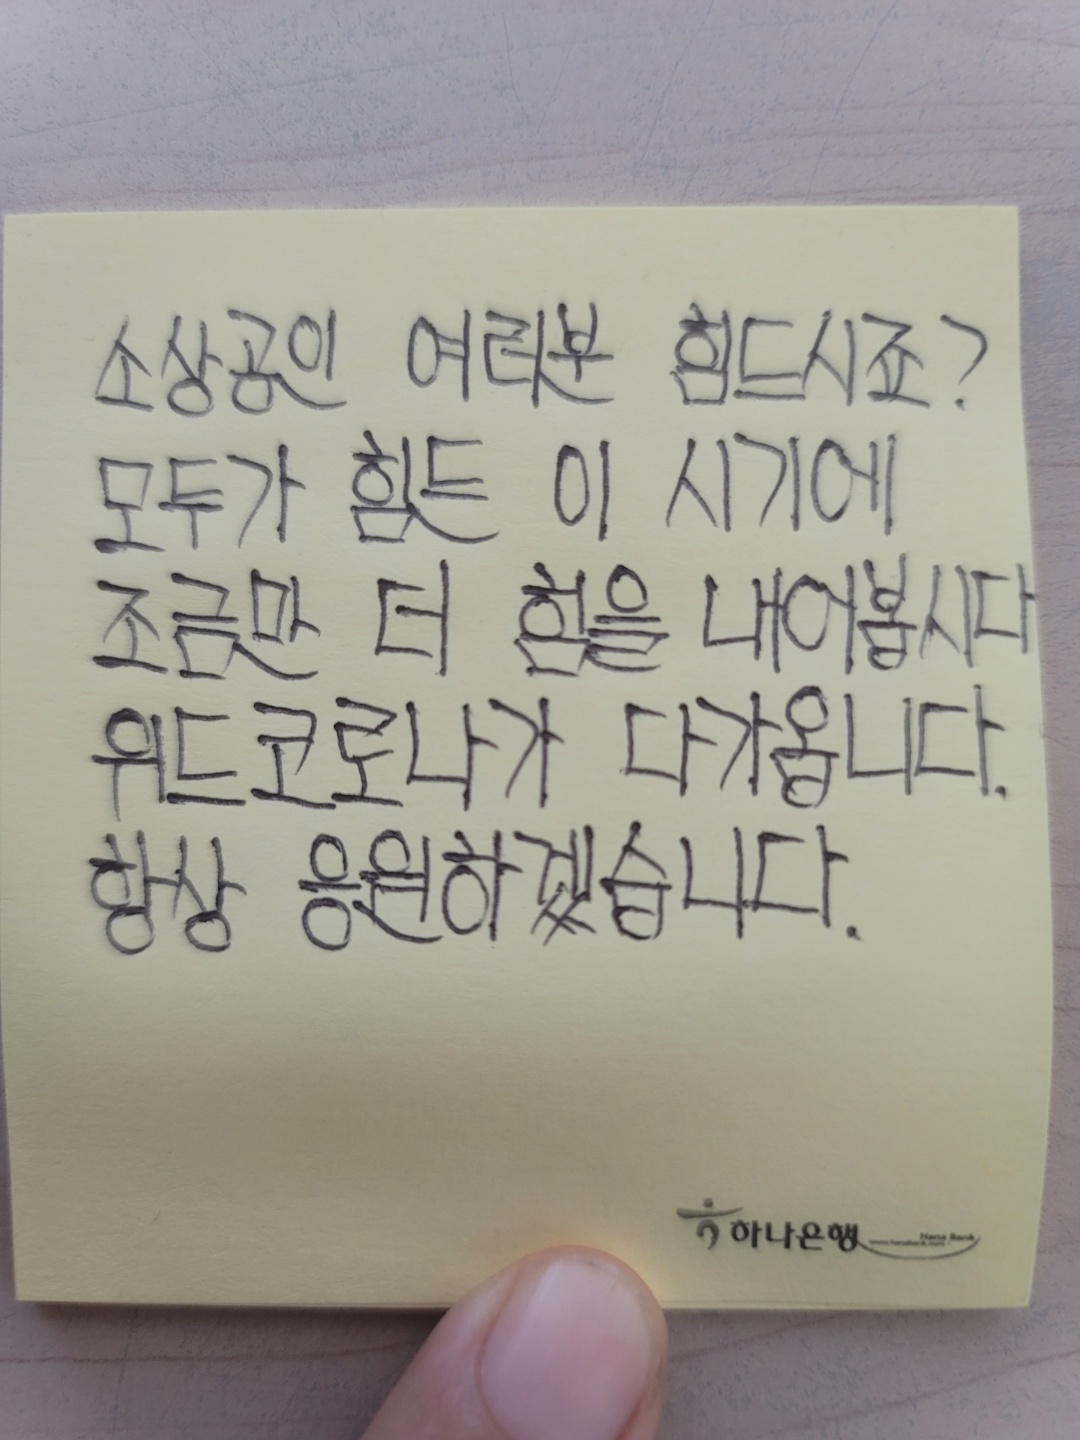 소상공인 여러분 힘드시죠?
모두가 힘든 이 시기에
조금만 더 힘을 내어봅시다
위드코로나가 다가옵니다.
항상 응원하겠습니다.
하나은행
Hana Bank